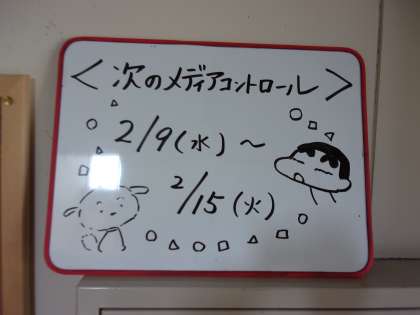 ＜次のメディアコントロール＞
2/9(水)～
2/15(火)